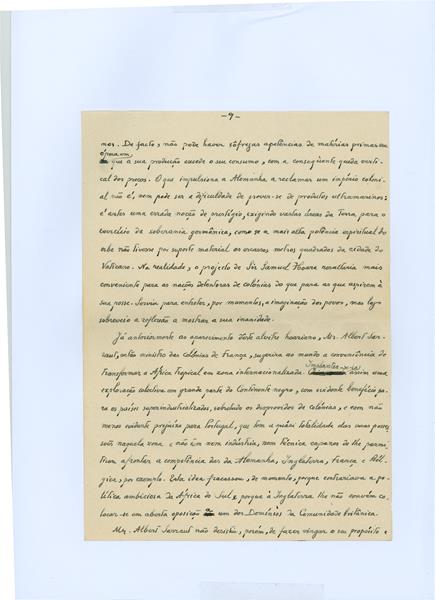 -9-
mos. De facto, não pode haver sôfregas apetências de matérias primas em
época em
que a sua produção excede o seu consumo, com a conseqüente queda verti-
cal dos preços. O que impulsiona a Alemanha a reclamar um império coloni-
al não é, nem pode ser a dificuldade de prover-se de produtos ultramarinos:
é antes uma errada noção de prestígio, exigindo vastas áreas da Terra para o
exercício da soberania germânica, como se a mais alta potência espiritual do
orbe não tivesse por suporte material os escassos metros quadrados da cidade do
Vaticano. Na realidade, o projecto de Sir Samuel Hoare resultaria mais
conveniente para as nações detentoras de colónias do que para as que aspirem à
sua posse. Serviu para entreter, por momentos, a imaginação dos povos, mas logo
sobreveio a reflexão a mostrar a sua inanidade.
Já anteriormente ao aparecimento dêste alvitre hoareano, Mr. Albert Sar-
raut, então ministro das colónias de França, sugerira ao mundo a conveniência de
transformar a África Tropical em zona internacionalizada.
Implantar-se-ia
assim uma
exploração colectiva em grande parte do Continente negro, com evidente benefício pa-
ra os países superindustrializados, sobretudo os desprovidos de colónias, e com não
menos evidente prejuízo para Portugal, que tem a quási totalidade das suas posses-
sões naquela zona e não tem nem indústria, nem técnica capazes de lhe permi-
tirem afrontar a competência das da Alemanha, Inglaterra, França e Bél-
gica, por exemplo. Esta idea fracassou, de momento, porque contrariava a po-
lítica ambiciosa da África do Sul e porque à Inglaterra lhe não convém co-
locar-se em aberta oposição a um dos Domínios da Comunidade Britânica.
Mr. Albert Sarraut não desistiu, porém, de fazer vingar o seu propósito e